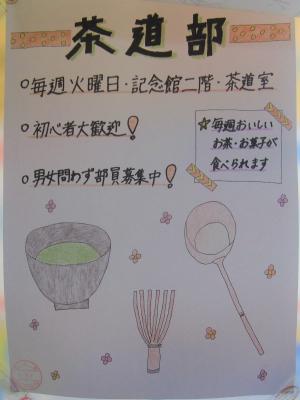 茶道部
○毎週火曜日・記念館二階・茶道室
○初心者大歓迎!
○男女問わず部員募集中!
☆毎週おいしい
お茶・お菓子が
食べられます